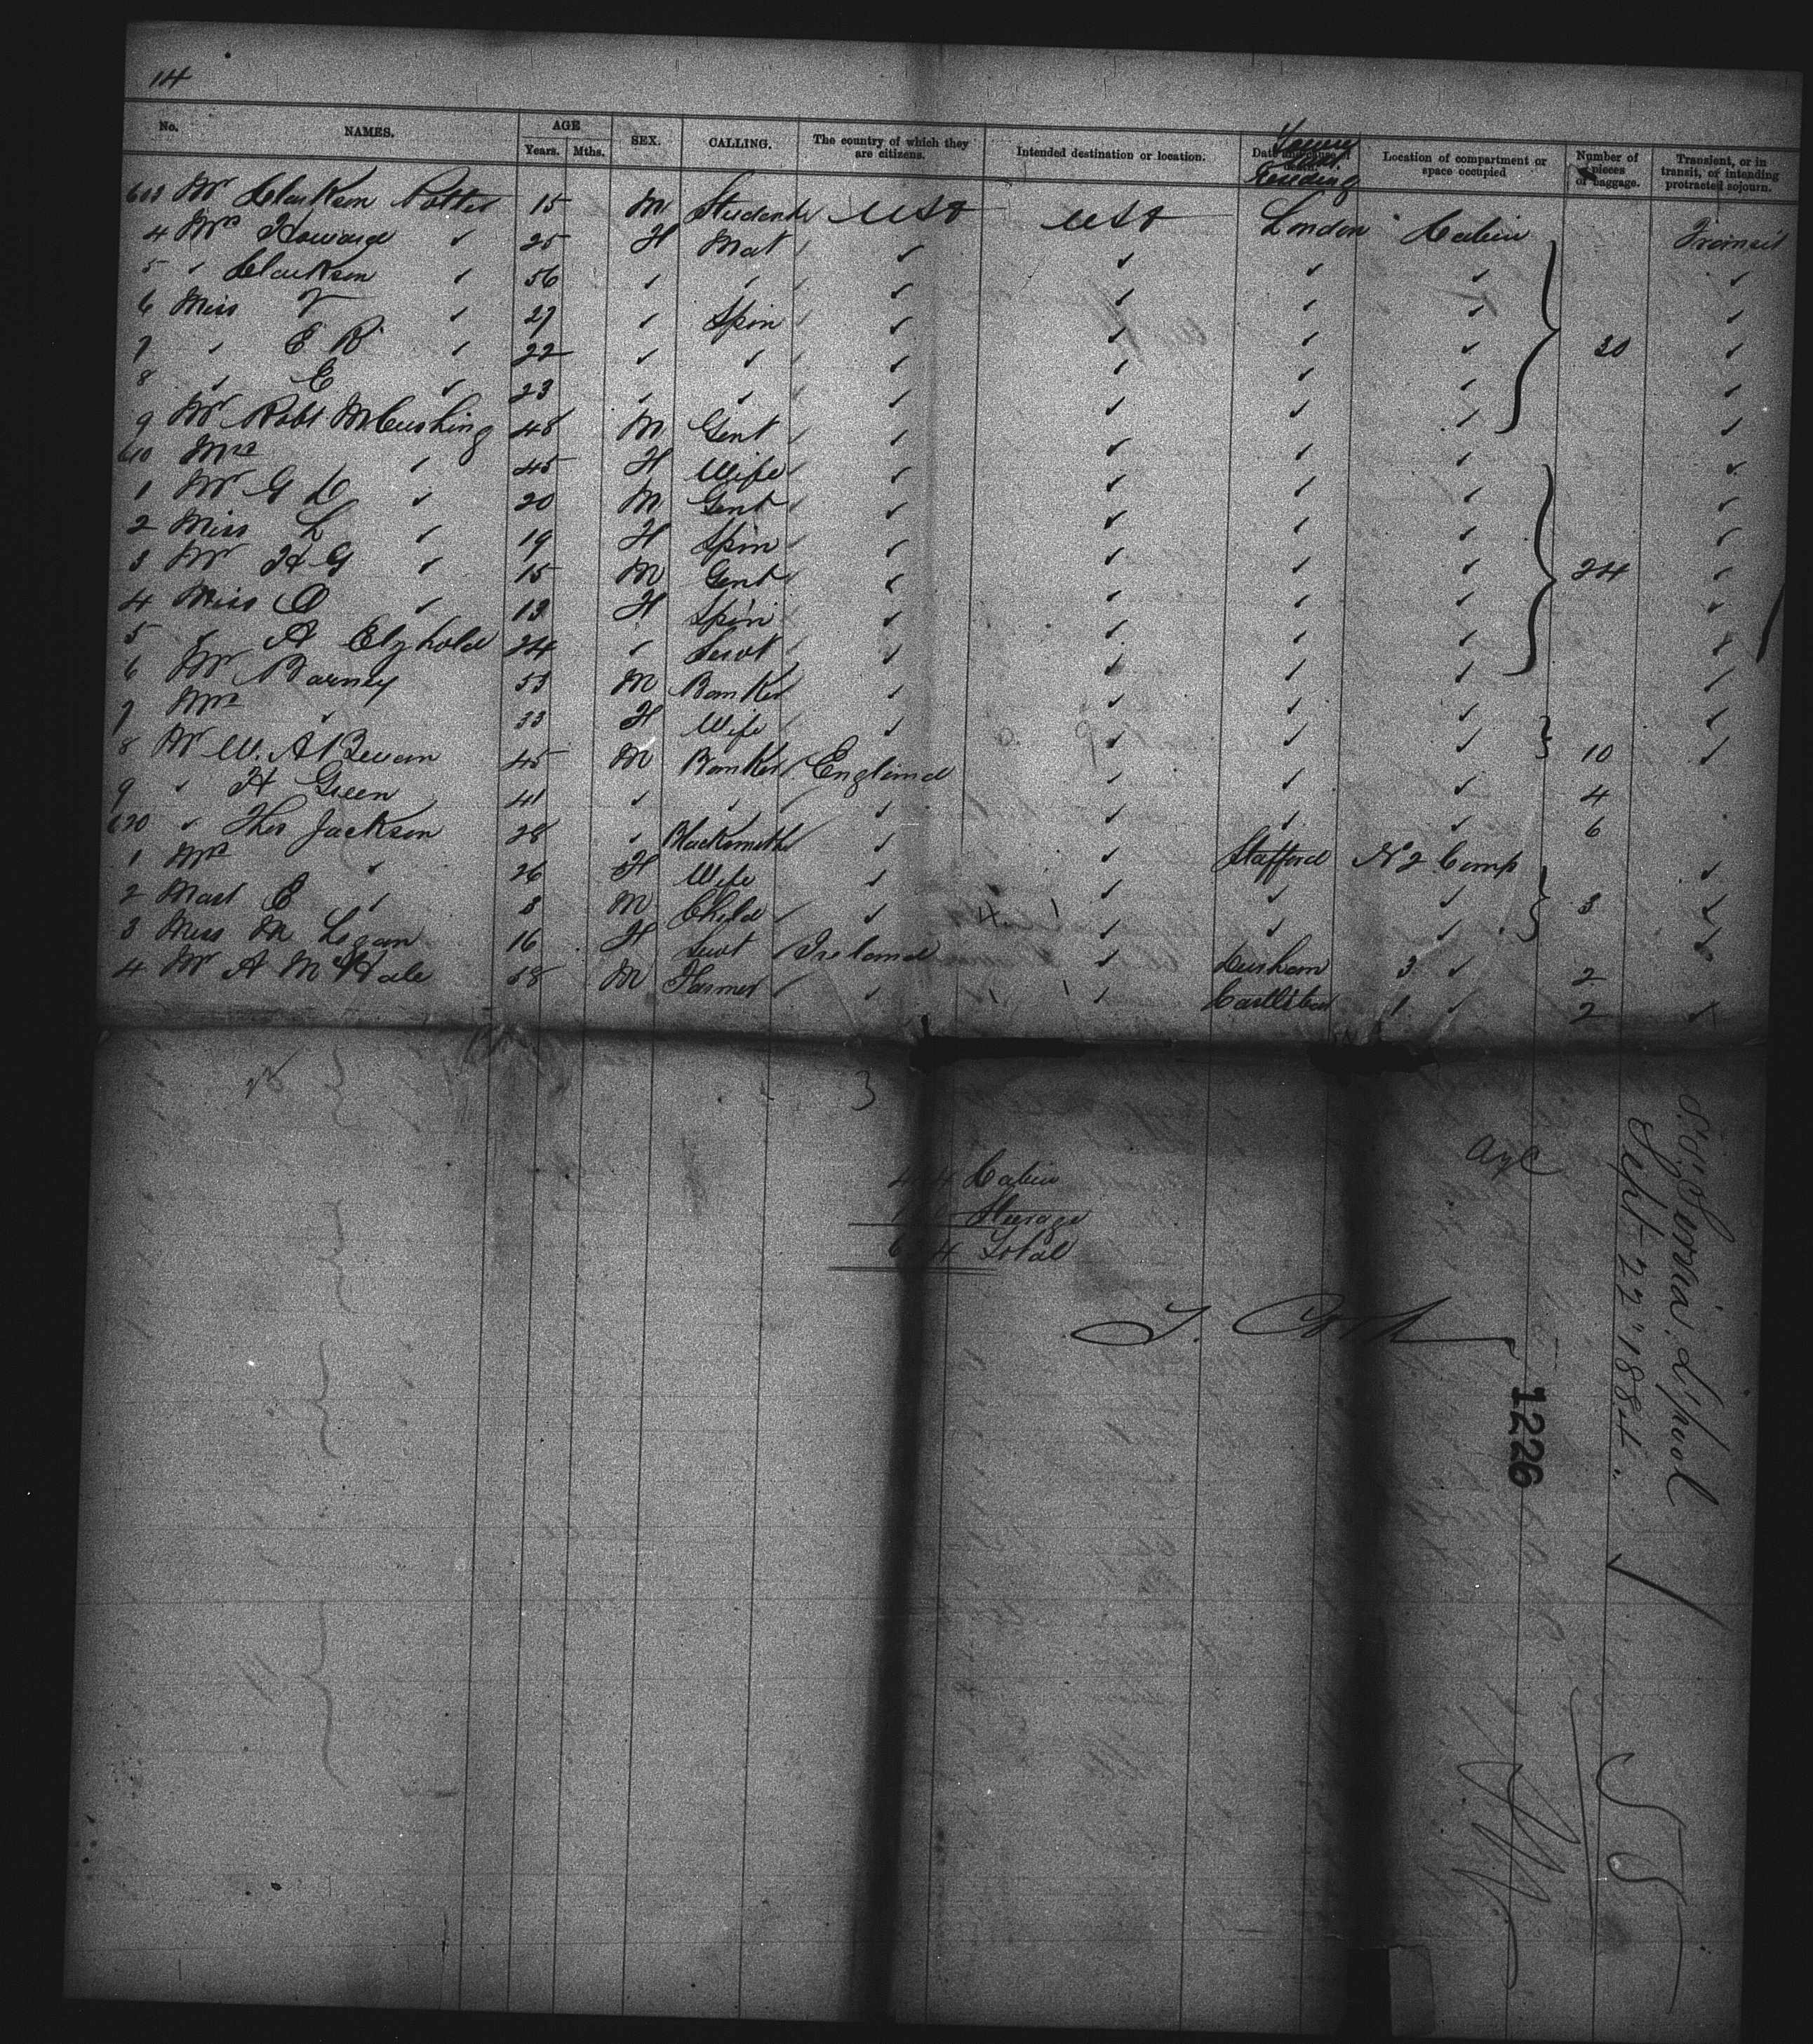 14
No. NAMES. AGE Years. Mths. SEX. CALLING. The country of which they are citizens. Intended destination or location. Date and cause of death. Location of compartment or space occupied Number of pieces of baggage. Transient, or in transit, or intending protracted sojourn.
603 Mr Clarkson Potter 15 M Student USA USA London Cabin Transit
4 Mrs Howard ✓ 25 F Mat ✓ ✓ ✓ ✓ ✓
5 ✓ Clarkson ✓ 56 ✓ ✓ ✓ ✓ ✓ ✓ ✓
6 Miss V ✓ 27 ✓ Spin ✓ ✓ ✓ ✓ ✓
7 ✓ E R ✓ 22 ✓ ✓ ✓ ✓ ✓ ✓ 30 ✓
8 ✓ E ✓ 23 ✓ ✓ ✓ ✓ ✓ ✓ ✓
9 Mr Robt M Cushing 48 M Gent ✓ ✓ ✓ ✓ ✓
610 Mrs ✓ 45 F Wife ✓ ✓ ✓ ✓ ✓
1 Mr G ✓ 20 M Gent ✓ ✓ ✓ ✓ ✓
2 Miss L ✓ 19 F Spin ✓ ✓ ✓ ✓ ✓
3 Mr H G ✓ 15 M Gent ✓ ✓ ✓ ✓ 24 ✓
4 Miss O ✓ 13 F Spin ✓ ✓ ✓ ✓ ✓
5 ✓ A 24 ✓ Servt ✓ ✓ ✓ ✓ ✓
6 Mr Barney 53 M Banker ✓ ✓ ✓ ✓ ✓
7 Mrs ✓ 33 F Wife ✓ ✓ ✓ ✓ 10 ✓
8 Mr W. A Bevan 45 M Banker England ✓ ✓ ✓ 4
9 ✓ H Green 41 ✓ ✓ ✓ ✓ ✓ ✓ 6
620 ✓ Thos Jackson 28 ✓ Blacksmith ✓ ✓ Stafford No 2 Comp ✓
1 Mrs ✓ 26 F Wife ✓ ✓ ✓ ✓ 3 ✓
2 Mast E ✓ 3 M Child ✓ ✓ ✓ ✓ ✓
3 Miss M Logan 16 F Servt Ireland ✓ Durham 3 ✓ 2
4 Mr A McHale 58 M Farmer ✓ ✓ Castlebar 1 ✓ 2 ✓
3
Cabin
Steerage
Total
1226
L'pool
Sept 22" 1884.